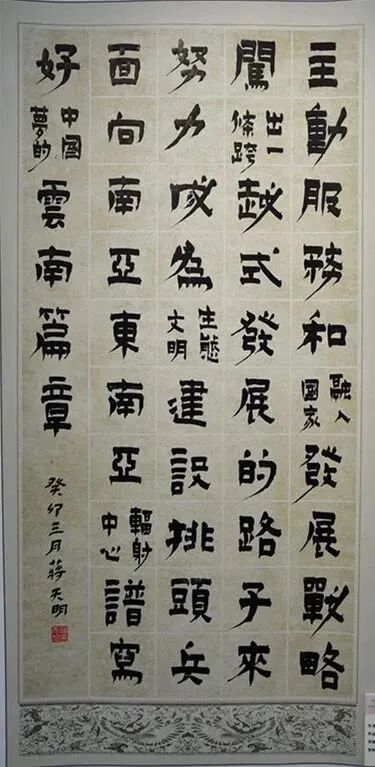 主動服務和融入國家發展戰略
闖出一條跨越式發展的路子來
努力成為生態文明建設排頭兵
面向南亞東南亞輻射中心譜寫
好中国夢的雲南篇章
癸卯三月蔣天明